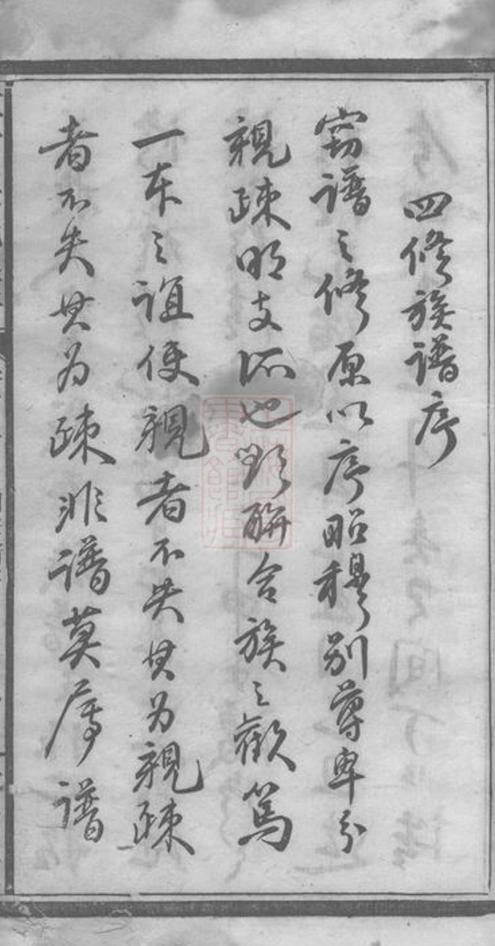 四修族譜序
窃譜之修原以序昭穆別尊卑分
親疎明支派也欤聨合族之歡篤
一本之誼使親者不失其为親疎
者不失其为疎非譜莫属譜